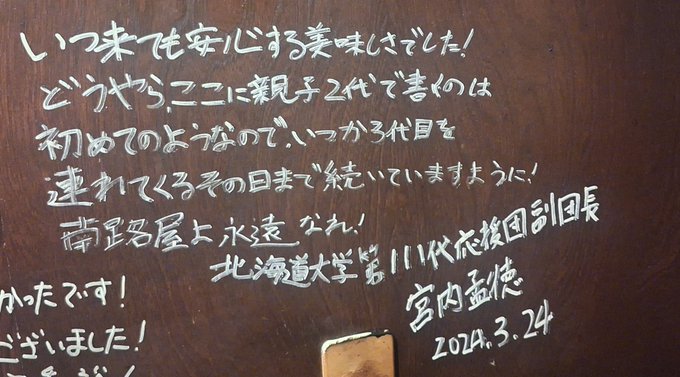 いつ来ても安心する美味しさでした!
どうやら、ここに親子2代で書くのは
初めてのようなので、いつか3代目を
連れてくるその日まで続いていますように!
南路屋よ永遠なれ!
北海道大学第111代応援団副団長
宮内孟徳
2024.3.24
かったです!
ございました!